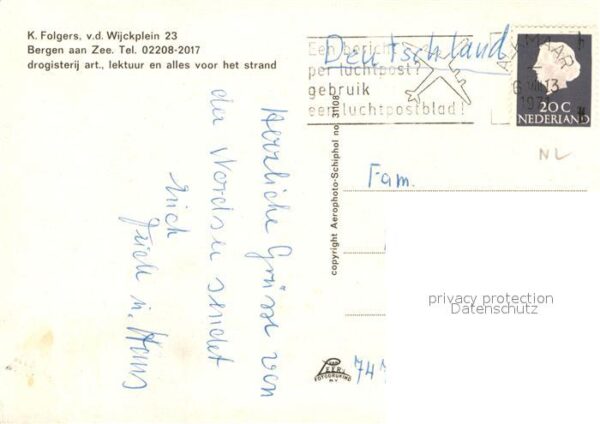 K. Folgers, v.d. Wijckplein 23
Bergen aan Zee. Tel. 02208-2017
drogisterij art., lektuur en alles voor het strand
Een bericht
per luchtpost?
gebruik
een luchtpostblad!
Deutschland
ALKMAAR
20 C
NEDERLAND
NL
Herzliche Grüsse von
der Nordsee sendet
Euch
u. Hans
copyright Aerophoto-Schiphol no. 31108
Fam.
privacy protection
Datenschutz
VAN
LEER's
FOTODRUKIND
N.V.
747